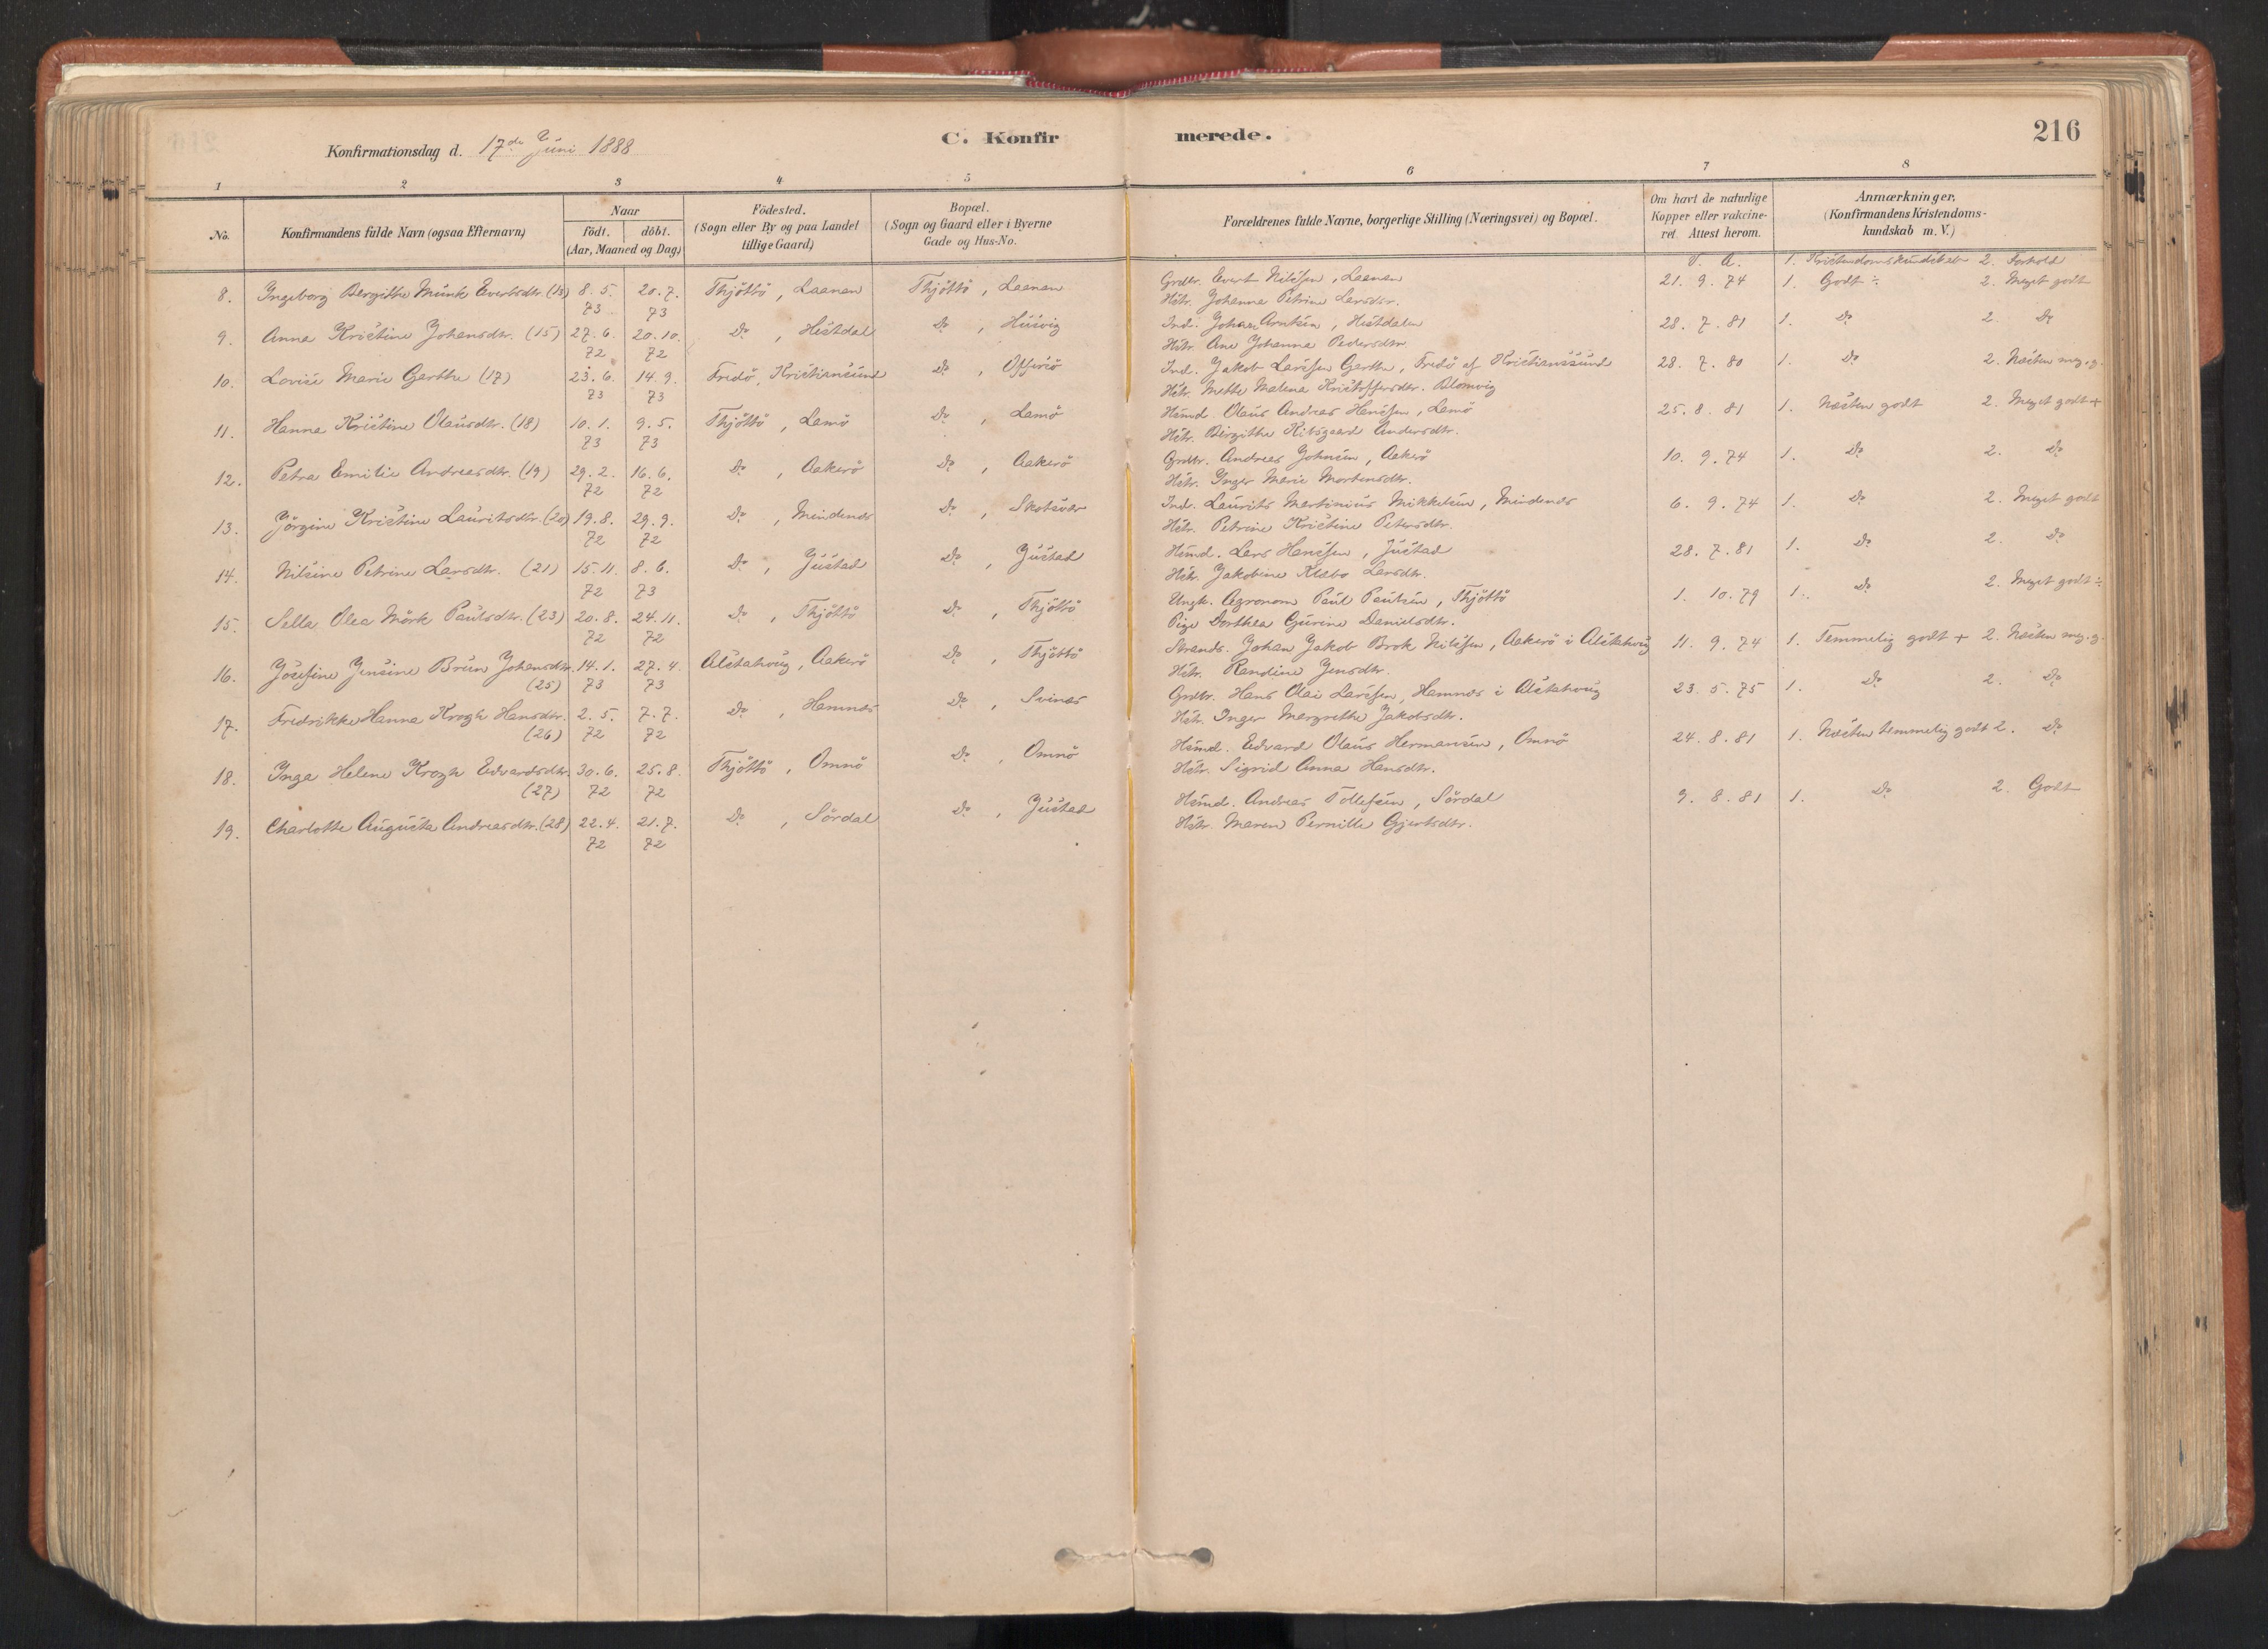 216
Konfirmationsdag d. 17de Juni 1888
C. Konfirmerede.
1 2 3 4 5 6 7 8
No.
Konfirmandens fulde Navn (ogsaa Efternavn)
Naar
födt. döbt.
(Aar, Maaned og Dag)
Födested.
(Sogn eller By og paa Landet
tillige Gaard)
Bopæl.
(Sogn og Gaard eller i Byerne
Gade og Hus-No.
Forældrenes fulde Navne, borgerlige Stilling (Næringsvei) og Bopæl.
Om havt de naturlige
Kopper eller vakcine-
ret. Attest herom.
Anmærkninger,
(Konfirmandens Kristendoms-
kundskab m. V.)
V. A. 1. Kristendomskundskab 2. Forhold
8. Ingeborg Bergithe Munk Evertsdtr. 8.5. 20.7. Thjöttö, Laanan Thjöttö, Laanan Grdbr. Evert Nilssen, Laanan 21.9.74 1. Godt ÷ 2. Meget godt
73 73 Hstr. Johanna Petrine Larsdtr.
9. Anna Kristine Johansdtr. (15) 27.6. 20.10. Do, Hestdal Do, Husvig Ind. Johan Arntsen, Hestdalen 28.7.81 1. Do 2. Do
72 72 Hstr. Ane Johanna Pedersdtr.
10. Lovise Marie Garthe (17) 23.6. 14.9. Fredö, Kristiansund Do, Offersö Ind. Jakob Larssen Garthe, Fredö af Kristianssund 28.7.80 1. Do 2. Næsten meg. g.
73 73 Hstr. Mette Malena Kristoffersdtr. Blomvig
11. Hanna Kristine Olausdtr. (18) 10.1. 9.5. Thjöttö, Lamö Do, Lamö Hsmd. Olaus Andreas Hanssen, Lamö 25.8.81 1. Næsten godt 2. Meget godt +
73 73 Hstr. Birgithe Andersdtr.
12. Petra Emilie Andreasdtr. (19) 29.2. 16.6. Do, Aakerö Do, Aakerö Grdbr. Andreas Johnsen, Aakerö 10.9.74 1. Do 2. Do
72 72 Hstr. Inger Marie Mortensdtr.
13. Jörgine Kristine Lauritsdtr. (20) 19.8. 29.9. Do, Mindenæs Do, Skotsvær Ind. Laurits Martinius Mikkelsen, Mindenæs 6.9.74 1. Do 2. Meget godt
72 72 Hstr. Petrine Kristine Petersdtr.
14. Nilsine Petrine Larsdtr. (21) 15.11. 8.6. Do, Justad Do, Justad Hsmd. Lars Hanssen, Justad 28.7.81 1. Do 2. Do
72 73 Hstr. Jakobine Klæbo Larsdtr.
15. Sella Olea Mörk Paulsdtr. (23) 20.8. 24.11. Do, Thjöttö Do, Thjöttö Ungk. Agronom Paul Paulsen, Thjöttö 1.10.79 1. Do 2. Meget godt ÷
72 72 Pige Dorthea Gurine Danielsdtr.
16. Josefine Jensine Brun Johansdtr. 14.1. 27.4. Alstahoug, Aakerö Do, Thjöttö Strands. Johan Jakob Brok Nilssen, Aakerö i Alstahoug 11.9.74 1. Temmelig godt + 2. Næsten meg. g.
(25) 73 73 Hstr. Randine Jensdtr.
17. Fredrikke Hanna Krogh Hansdtr. 2.5. 7.7. Do, Hamnæs Do, Svinæs Grdbr. Hans Olai Larssen, Hamnæs i Alstahoug 23.5.75 1. Do 2. Do
(26) 72 72 Hstr. Inger Margrethe Jakobsdtr.
18. Inga Helene Krogh Edvardsdtr. 30.6. 25.8. Thjöttö, Omnö Do, Omnö Hsmd. Edvard Olaus Hermansen, Omnö 24.8.81 1. Næsten temmelig godt 2. Do
(27) 72 72 Hstr. Sigrid Anna Hansdtr.
19. Charlotte Augusta Andreasdtr. (28) 22.4. 21.7. Do, Sördal Do, Justad Hsmd. Andreas Tollefsen, Sördal 9.8.81 1. Do 2. Godt
72 72 Hstr. Maren Pernille Gjertsdtr.